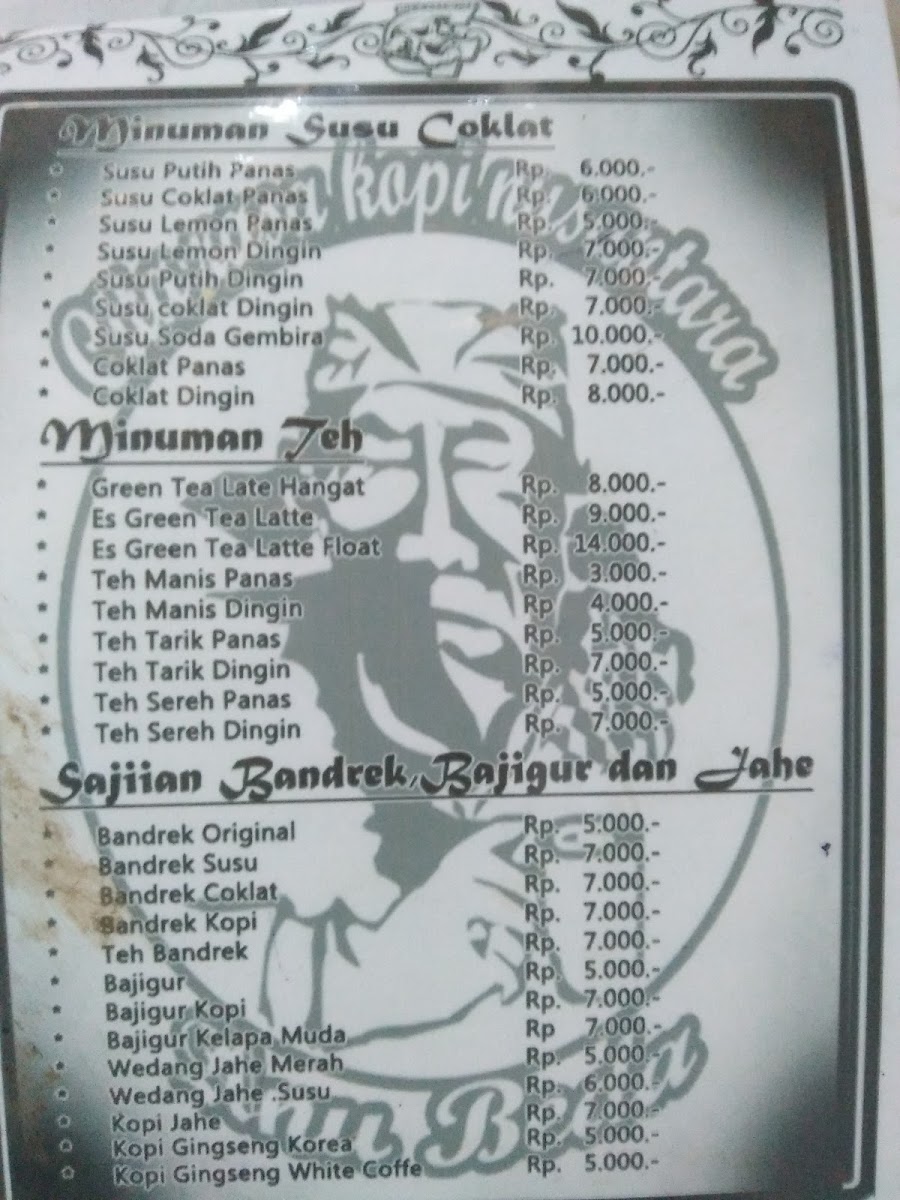 Minuman Susu Coklat
* Susu Putih Panas Rp. 6.000.-
* Susu Coklat Panas Rp. 6.000.-
* Susu Lemon Panas Rp. 5.000.-
* Susu Lemon Dingin Rp. 7.000.-
* Susu Putih Dingin Rp. 7.000.-
* Susu coklat Dingin Rp. 7.000.-
* Susu Soda Gembira Rp. 10.000.-
* Coklat Panas Rp. 7.000.-
* Coklat Dingin Rp. 8.000.-
kopi
Minuman Teh
* Green Tea Late Hangat Rp. 8.000.-
* Es Green Tea Latte Rp. 9.000.-
* Es Green Tea Latte Float Rp. 14.000.-
* Teh Manis Panas Rp. 3.000.-
* Teh Manis Dingin Rp 4.000.-
* Teh Tarik Panas Rp. 5.000.-
* Teh Tarik Dingin Rp. 7.000.-
* Teh Sereh Panas Rp. 5.000.-
* Teh Sereh Dingin Rp. 7.000.-
Sajiian Bandrek, Bajigur dan Jahe
* Bandrek Original Rp. 5.000.-
* Bandrek Susu Rp. 7.000.-
* Bandrek Coklat Rp. 7.000.-
* Bandrek Kopi Rp. 7.000.-
* Teh Bandrek Rp. 7.000.-
* Bajigur Rp. 5.000.-
* Bajigur Kopi Rp. 7.000.-
* Bajigur Kelapa Muda Rp 7.000.-
* Wedang Jahe Merah Rp. 5.000.-
* Wedang Jahe .Susu Rp. 6.000.-
* Kopi Jahe Rp. 7.000.-
* Kopi Gingseng Korea Rp. 5.000.-
* Kopi Gingseng White Coffe Rp. 5.000.-